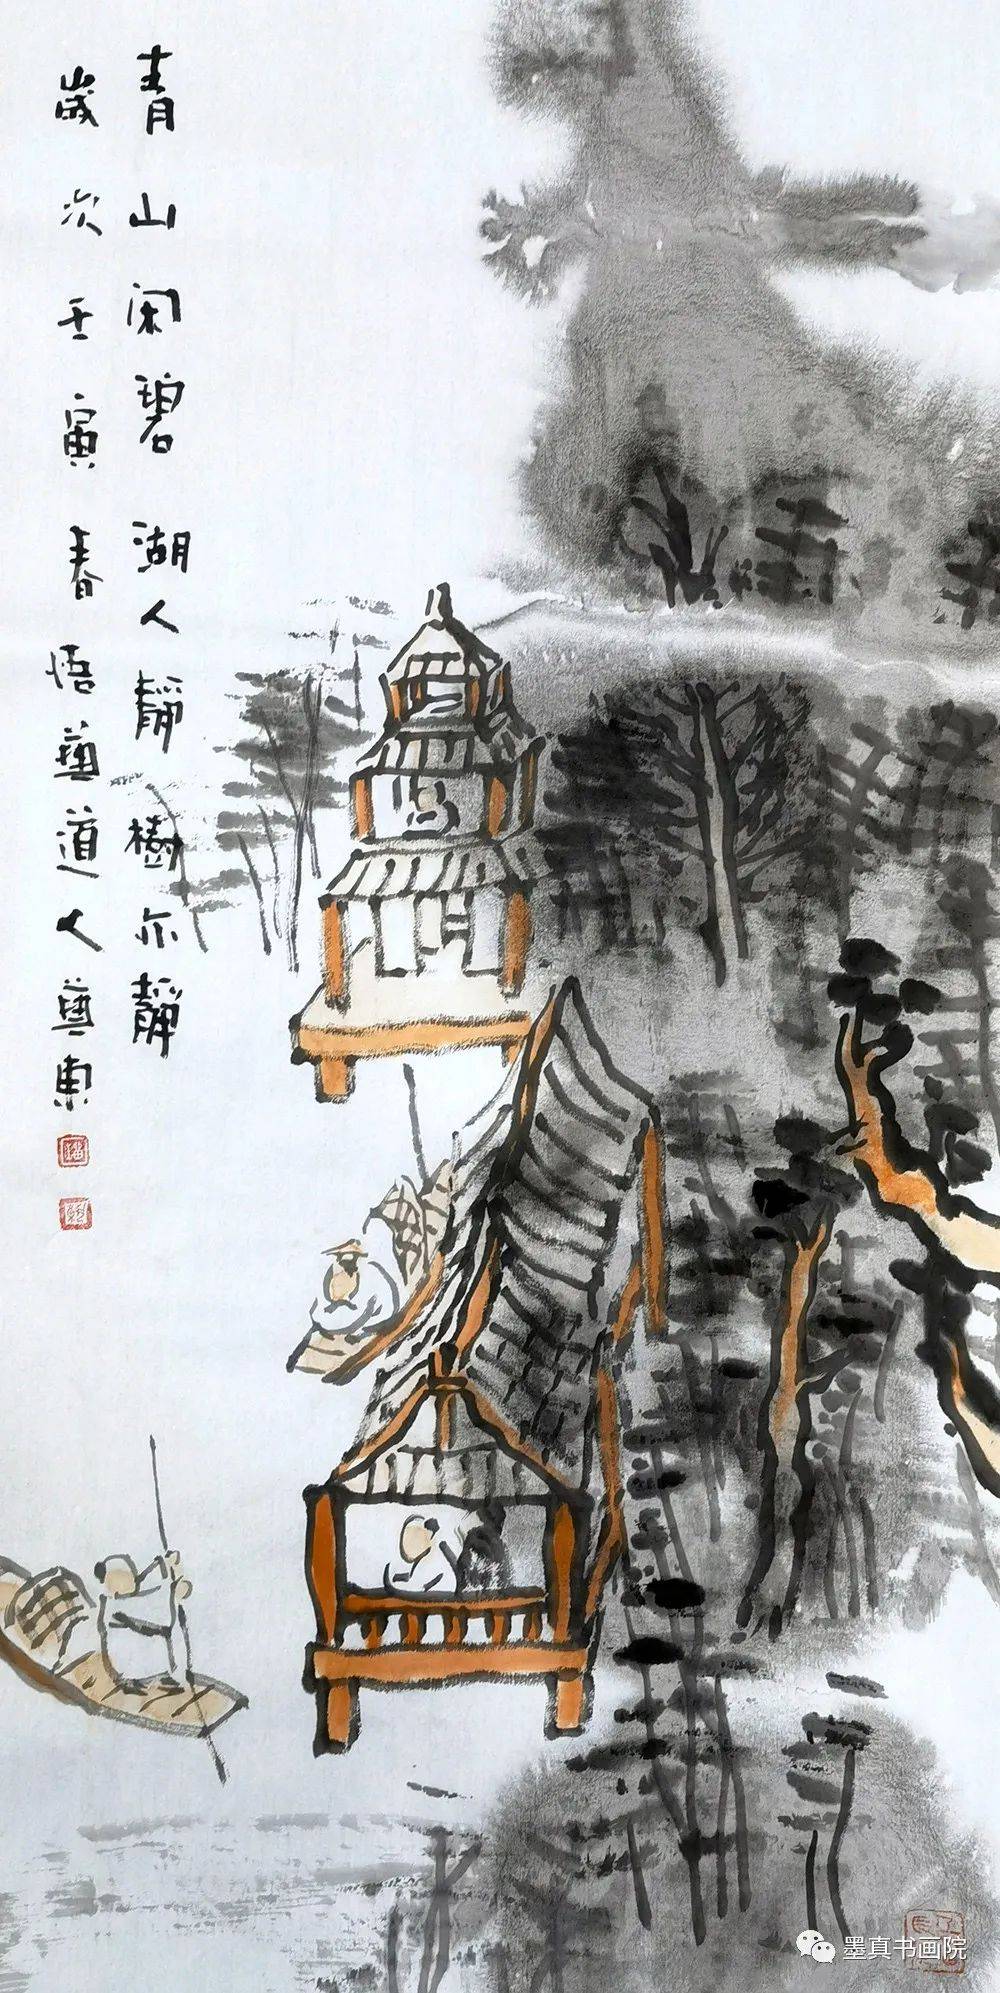 青山闲碧湖人静樹亦静
歲次壬寅春悟藝道人藝東
墨真书画院